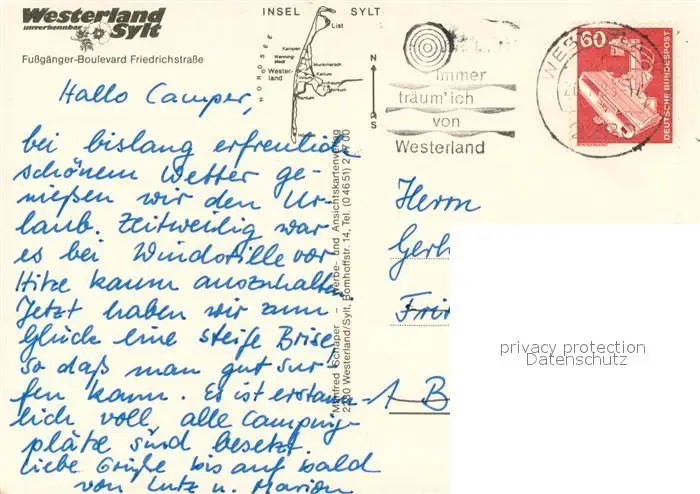 Westerland
unverkennbar Sylt
Fußgänger-Boulevard Friedrichstraße
INSEL SYLT
NORDSEE
List
Kampen
Wenning-
stedt
Munkmarsch
Wester-
land
Keitum
Archsum
Morsum
Rantum
Hörnum
N
S
Immer
träum' ich
von
Westerland
60
DEUTSCHE BUNDESPOST
Hallo Camper,
bei bislang erfreulich
schönem Wetter ge-
nießen wir den Ur-
laub. Zeitweilig war
es bei Windstille vor
Hitze kaum auszuhalten.
Jetzt haben wir zum
Glück eine steife Brise
so daß man gut sur-
fen kann. Es ist erstaun-
lich voll, alle Camping-
plätze sind besetzt.
Liebe Grüße bis auf bald
von Lutz u. Marion
Manfred Schaper - Werbe- und Ansichtskartenverlag
2280 Westerland/Sylt, Bomhoffstr. 14, Tel. (04651)
Herrn
Gerh
Frin
A B
privacy protection
Datenschutz